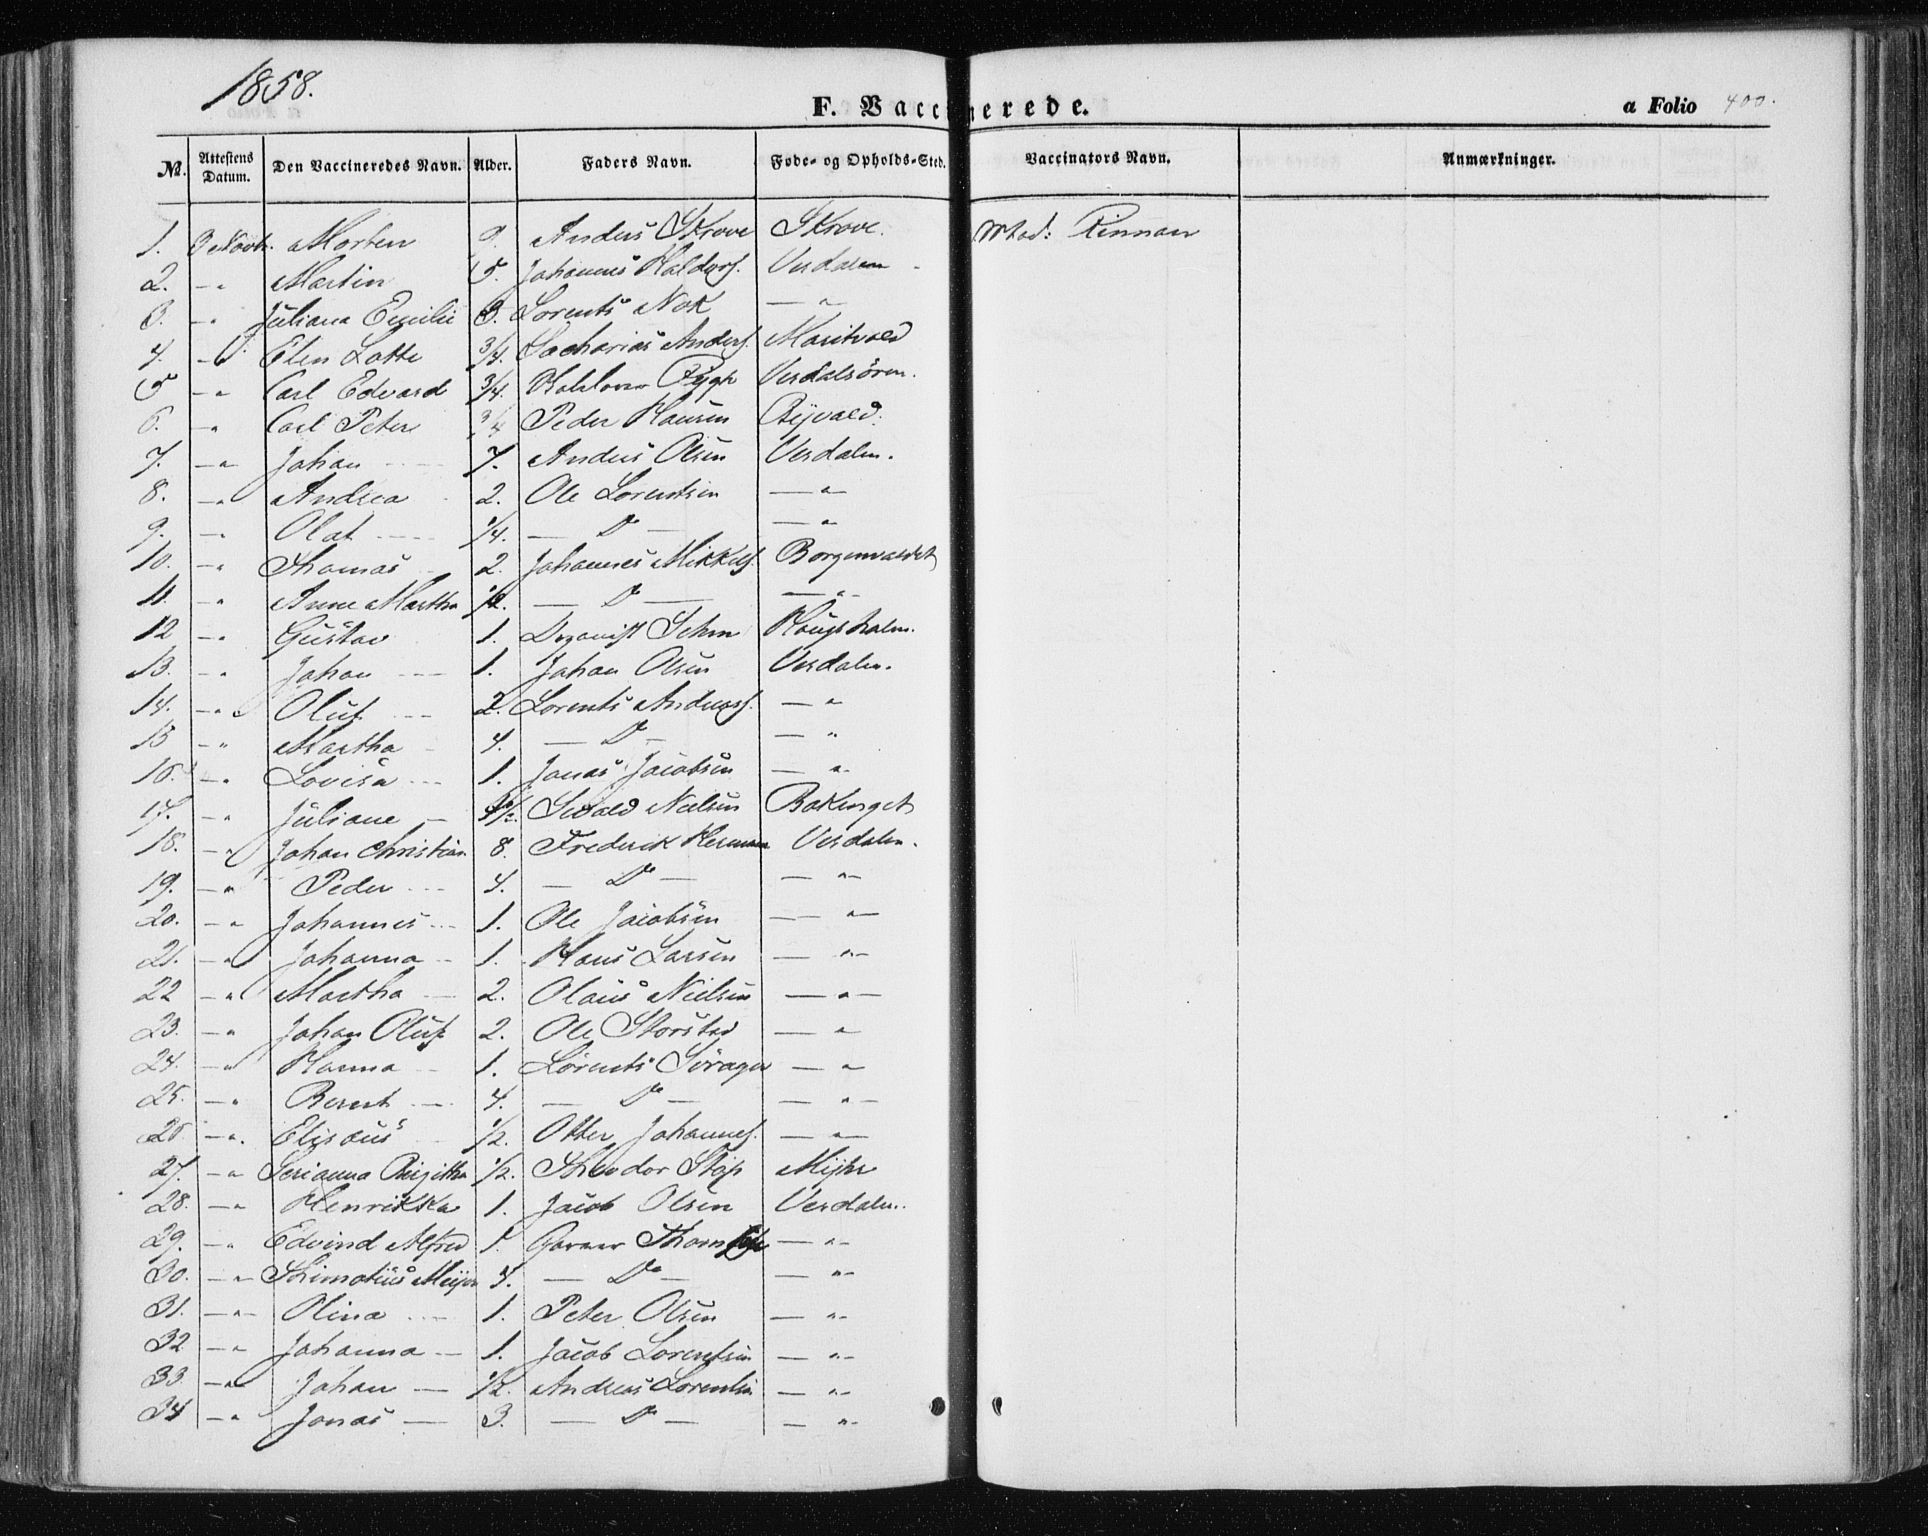 1858.
F. Vaccinerede.
a Folio 400.
No. Attestens Datum. Den Vaccineredes Navn. Alder. Faders Navn. Føde- og Opholds-Sted. Vaccinators Navn. Anmærkninger.
1. 9 Novbr. Morten 9. Anders Skrove Skrove. Rinnan
2. — " Martin 5. Johannes Haldorss. Verdalen
3. — " Juliana Emilie 3. Lorents Nok — "
4. — " Elen Lotte 3/4. Zacharias Anders. Maritvald
5 — " Carl Edvard 3/4. Rygh Verdalsøren.
6. — " Carl Peter 3/4 Peder Hansen
7. — " Johan 7. Anders Olsen Verdalen.
8. — " Andrea 2. Ole Lorentsen — " —
9. — " Olat 1/4. — Do — — " —
10. — " Thomas 2. Johannes Mikkels. Borgenvaldet
11. — " Anne Martha 1/2. — Do — — " —
12 — " Gustav 1. Organist Sehm Haugsholm.
13. — " Johan 1. Johan Olsen Verdalen.
14. — " Oluf 2. Lorents Anderss. — "
15 — " Martha 4. — Do — — "
16. — " Lovisa 1. Jonas Jacobsen — "
17. — " Juliane Sivald Nielsen
18. — " Johan Christian 8. Frederik Herman Verdalen.
19. — " Peder 4. — Do — — " —
20. — " Johannes 1. Ole Jacobsen — " —
21. — " Johanna 1. Hans Larsen — " —
22 — " Martha 2. Olaus Nielsen — " —
23. — " Johan Oluf 2. Ole Storstad — "
24. — " Hanna 1. Lorents — "
25. — " Bernt 4. — Do — — " —
26 — " Elisæus 1/2. Otter Johannes. — " —
27. — " Serianna Birgitha 1/2. Theodor Stop
28. — " Henrikka 1. Jacob Olsen Verdalen.
29. — " Edvind Alfred 1. Garver — " —
30. — " Thimotius Meijer 4. — Do — — " —
31. — " Olina 1. Peter Olsen — " —
32 — " Johanna 1. Jacob Lorentsen — " —
33. — " Johan 1/2. Andreas Lorentsen — " —
34 — " Jonas 3. — Do — — " —